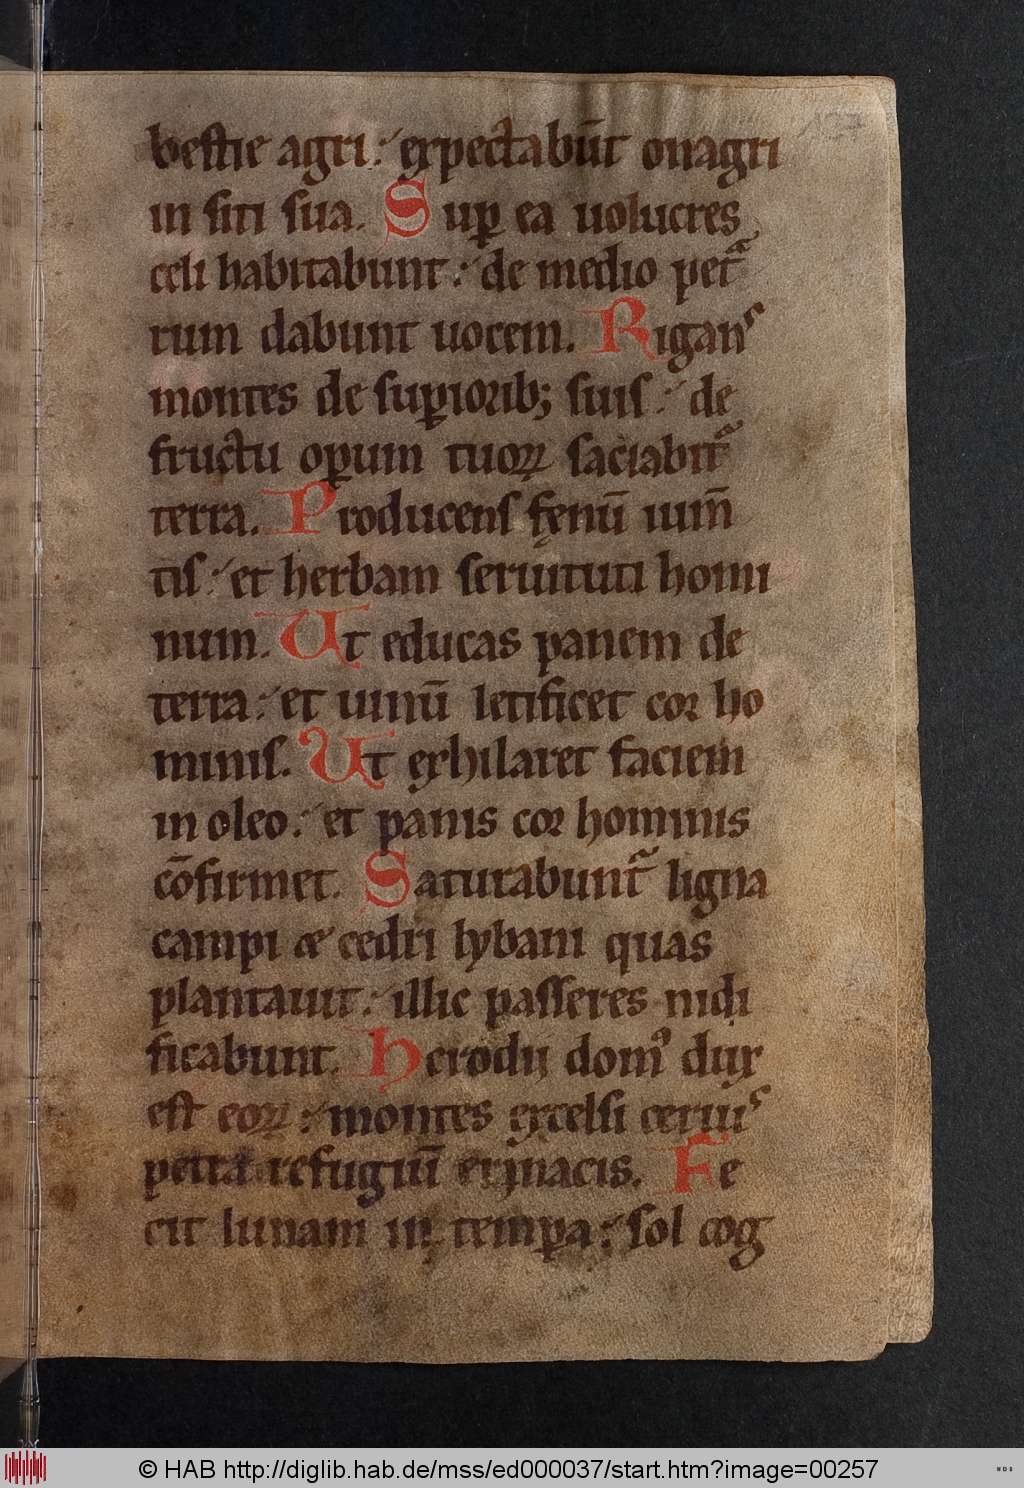 127
bestie agri: expectabūt onagri
in siti sua. Sup̱ ea uolucres
celi habitabunt: de medio petᷓ
rum dabunt uocem. Riganˢ
montes de sup̱iorib; suis: de
fructu op̱um tuoꝝ saciabitᷓ
terra. Producens fenū iumn̄
tis: et herbam seruituti homi
num. Ut educas panem de
terra: et uinū letificet cor ho
minis. Ut exhilaret faciem
in oleo: et panis cor hominis
cōfirmet. Saturabuntᷓ ligna
campi & cedri lybani quas
plantauit: illic passeres nidi
ficabunt. Herodii domꝰ dux
est eoꝝ: montes excelsi ceruiˢ
petra refugiū erinacis. Fe
cit lunam in temp̱a: sol cog
© HAB http://diglib.hab.de/mss/ed000037/start.htm?image=00257